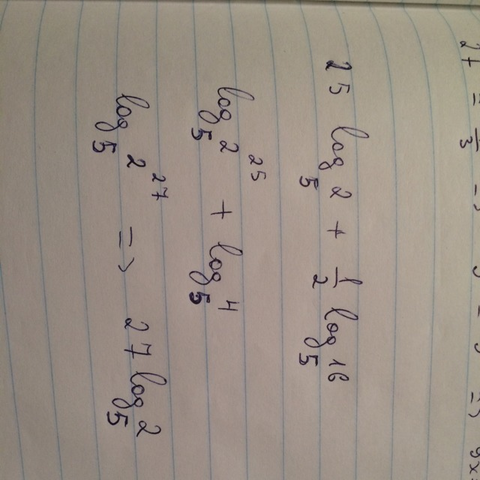 27 = 1/3 =>
25 log₅ 2 + 1/2 log₅ 16
log₅ 2²⁵ + log₅ 4
log₅ 2²⁷ => 27 log₅ 2